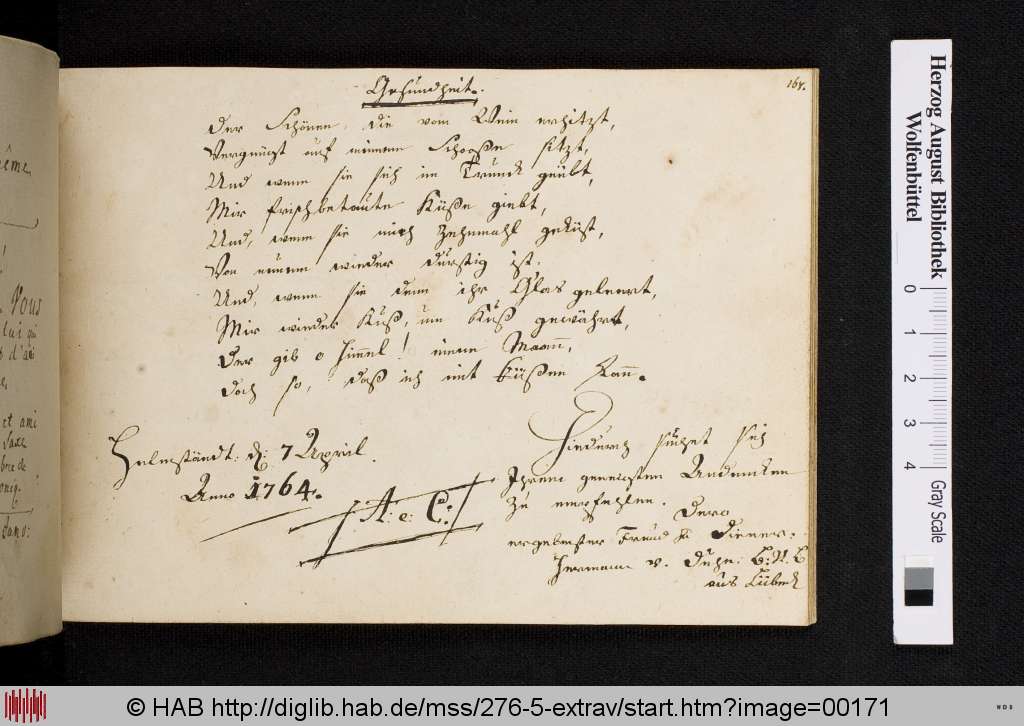 Gesundheit.
167.
Der Schönen, die vom Wein erhitzt,
Vergnügt auf meinem Schooße sitzt,
Und wenn sie sich im Trunck geübt,
Mir frischbethaute Küße giebt,
Und, wenn sie mich zehnmahl geküst,
Von neuem wieder durstig ist.
Und, wenn sie denn ihr Glas geleert,
Mir wieder Kuß, um Kuß gewährt,
Der gib o Himmel! einen Mann,
doch so, daß ich mit küßen kann.
Helmstädt: d: 7 April.
Anno 1764.
A: e: C:
Hiedurch suchet sich
Ihrem geneigten Andencken
zu empfehlen. Dero
ergebenster Freund & Diener.
Hermann v. Duhn:
aus Lübeck
ême
Vous
lui qui
et ami
Saxe
Herzog August Bibliothek
Wolfenbüttel
0 1 2 3 4
Gray Scale
© HAB http://diglib.hab.de/mss/276-5-extrav/start.htm?image=00171